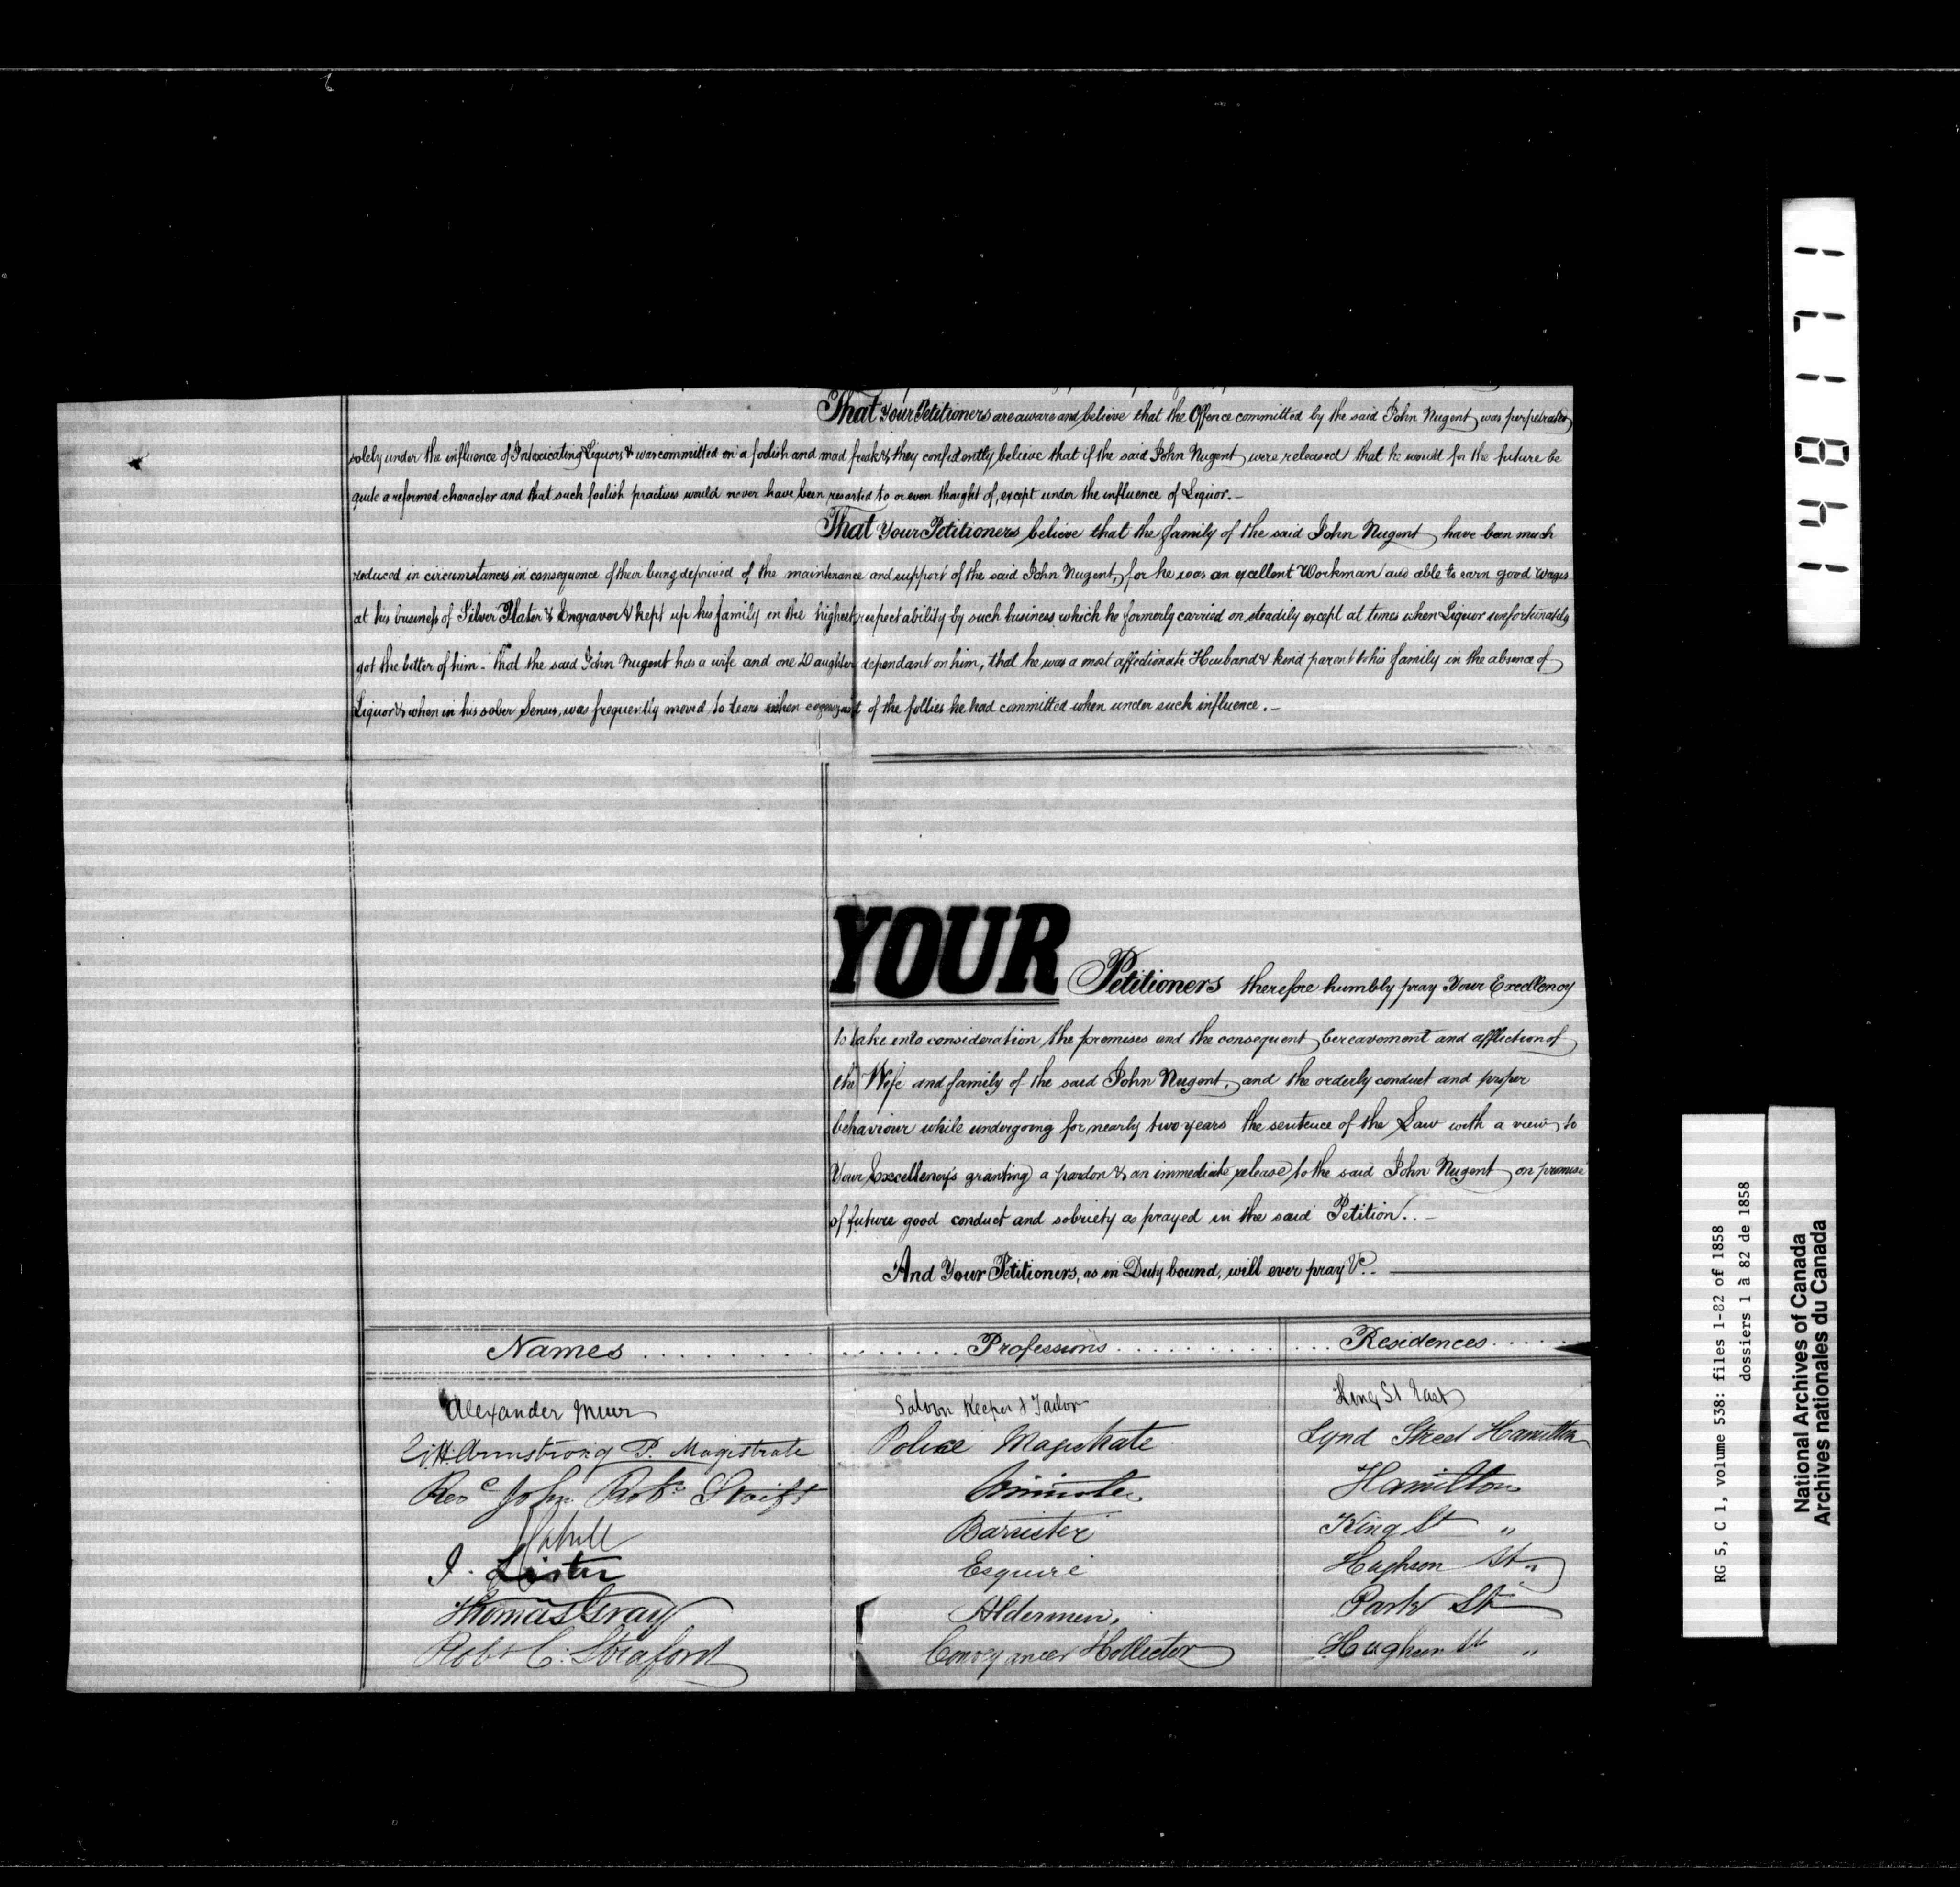 That Your Petitioners are aware and believe that the Offence committed by the said John Nugent was perpetrated
solely under the influence of Intoxicating Liquors & was committed in a foolish and mad freak & they confidently believe that if the said John Nugent were released that he would for the future be
quite a reformed character and that such foolish practises would never have been resorted to or even thought of, except under the influence of Liquor.—
That Your Petitioners believe that the family of the said John Nugent have been much
reduced in circumstances in consequence of their being deprived of the maintenance and support of the said John Nugent, for he was an excellent Workman and able to earn good wages
at his business of Silver Plater & Engraver & kept up his family in the highest respectability by such business which he formerly carried on steadily except at times when Liquor unfortunately
got the better of him - that the said John Nugent has a wife and one Daughter dependant on him, that he was a most affectionate Husband & kind parent to his family in the absence of
Liquor & when in his sober Senses, was frequently moved to tears when cognizant of the follies he had committed when under such influence.—
YOUR Petitioners therefore humbly pray Your Excellency
to take into consideration the premises and the consequent bereavement and affliction of
the Wife and family of the said John Nugent, and the orderly conduct and proper
behaviour while undergoing for nearly two years the sentence of the Law with a view to
Your Excellency's granting a pardon & an immediate release to the said John Nugent on promise
of future good conduct and sobriety as prayed in the said Petition..—
And Your Petitioners, as in Duty bound, will ever pray &c..
Names Professions Residences
Alexander Muir Saloon Keeper & Tailor King St East
Armstrong P. Magistrate Police Magistrate Lynd Street Hamilton
Revd John Robt Minister Hamilton
Cahill Barrister King St "
J. Lister Esquire Hughson St "
Thomas Gray Aldermen. Park St
Robt C. Straford Conveyancer & Collector Hughson St "
148171
RG 5, C 1, volume 538: files 1-82 of 1858
dossiers 1 à 82 de 1858
National Archives of Canada
Archives nationales du Canada